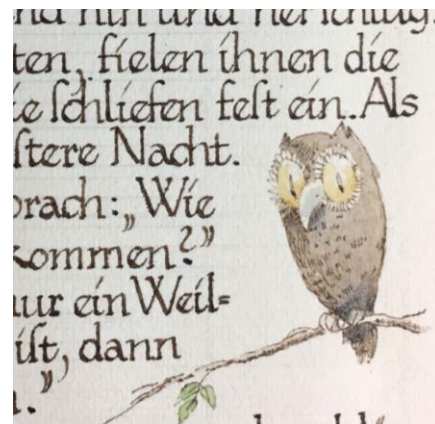 nd hin und her ſchlug.
ten, fielen ihnen die
ie ſchliefen feſt ein..Als
ſtere Nacht.
prach: „Wie
kommen?”
nur ein Weil=
iſt, dann